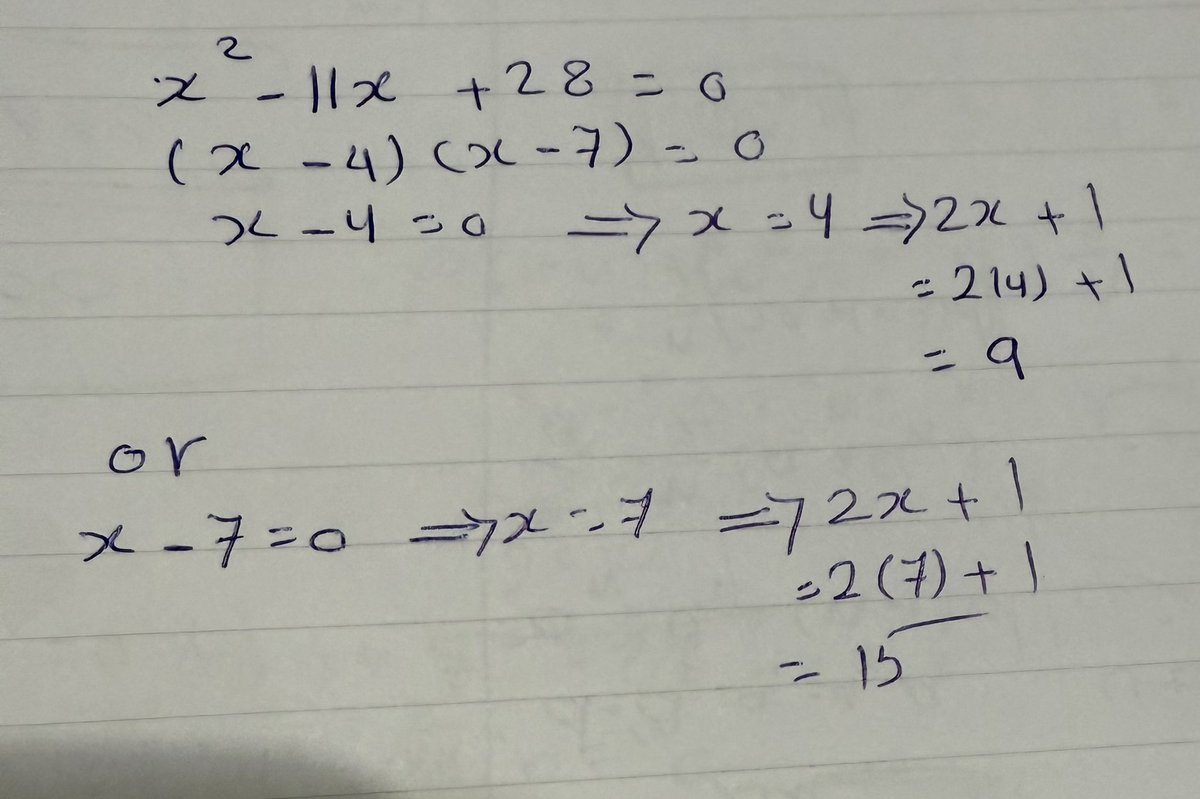 x² - 11x + 28 = 0
(x - 4) (x - 7) = 0
x - 4 = 0 ⇒ x = 4 ⇒ 2x + 1
= 2(4) + 1
= 9
or
x - 7 = 0 ⇒ x = 7 ⇒ 2x + 1
= 2(7) + 1
= 15